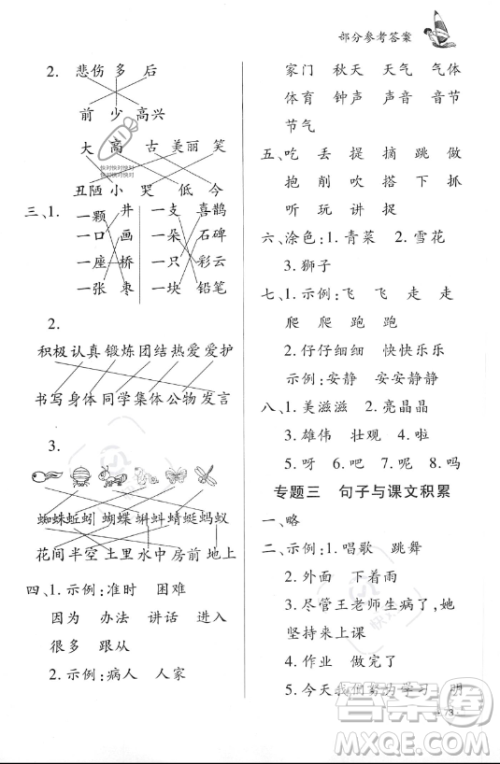 部分参考答案
2. 悲伤 多 后
前 少 高兴
大 高 古 美丽 笑
丑陋 小 哭 低 今
三、1. 一颗 井 一支 喜鹊
一口 画 一朵 石碑
一座 桥 一只 彩云
一张 枣 一块 铅笔
2.
积极 认真 锻炼 团结 热爱 爱护
书写 身体 同学 集体 公物 发言
3.
蜘蛛 蚯蚓 蝴蝶 蝌蚪 蜻蜓 蚂蚁
花间 半空 土里 水中 房前 地上
四、1. 示例：准时 困难
因为 办法 讲话 进入
很多 跟从
2. 示例：病人 人家
家门 秋天 天气 气体
体育 钟声 声音 音节
节气
五、吃 丢 捉 摘 跳 做
抱 削 刮 搭 下 抓
听 玩 讲 提
六、涂色：1. 青菜 2. 雪花
3. 狮子
七、1. 示例：飞 飞 走 走
爬 爬 跑 跑
2. 仔仔细细 快快乐乐
示例：安静 安安静静
八、1. 美滋滋 2. 亮晶晶
3. 雄伟 壮观 4. 啦
5. 呀 6. 吧 7. 呢 8. 吗
专题三 句子与课文积累
一、略
二、示例：1. 唱歌 跳舞
2. 外面 下着雨
3. 尽管王老师生病了，她
坚持来上课
4. 作业 做完了
5. 今天我们努力学习 明